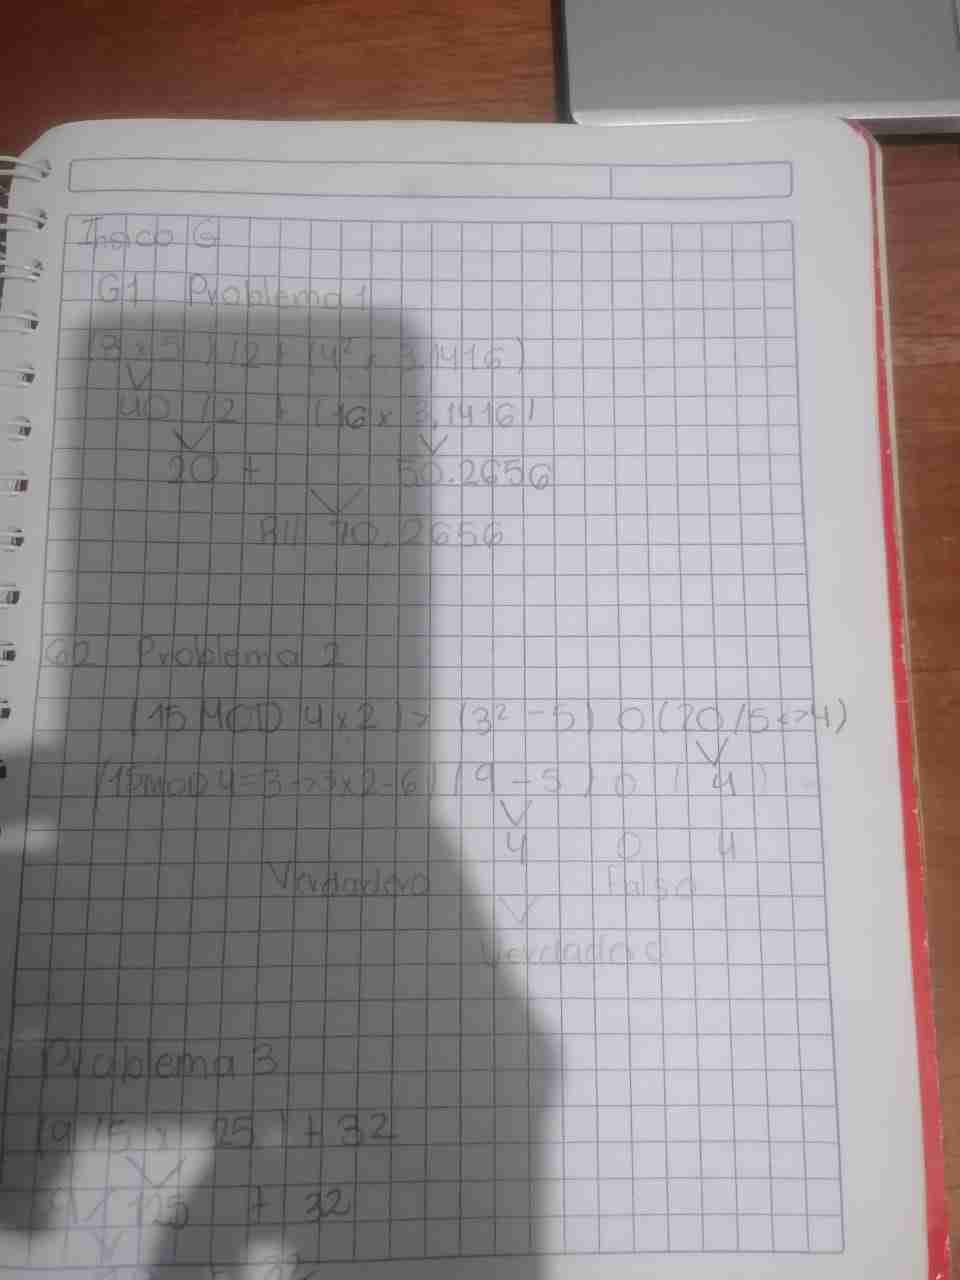 Inciso G
G1 Problema 1
(8 x 5) / 2 + (4² x 3.1416)
40 / 2 + (16 x 3.1416)
20 + 50.2656
R// 70.2656
G2 Problema 2
(15 MOD 4 x 2) > (3² - 5) O (20/5 <> 4)
(15 MOD 4 = 3 -> 3 x 2 - 6) (9 - 5) O (4)
4 O 4
Verdadero Falso
Verdadero
Problema 3
(9 / 5 x 25) + 32
125 + 32
32